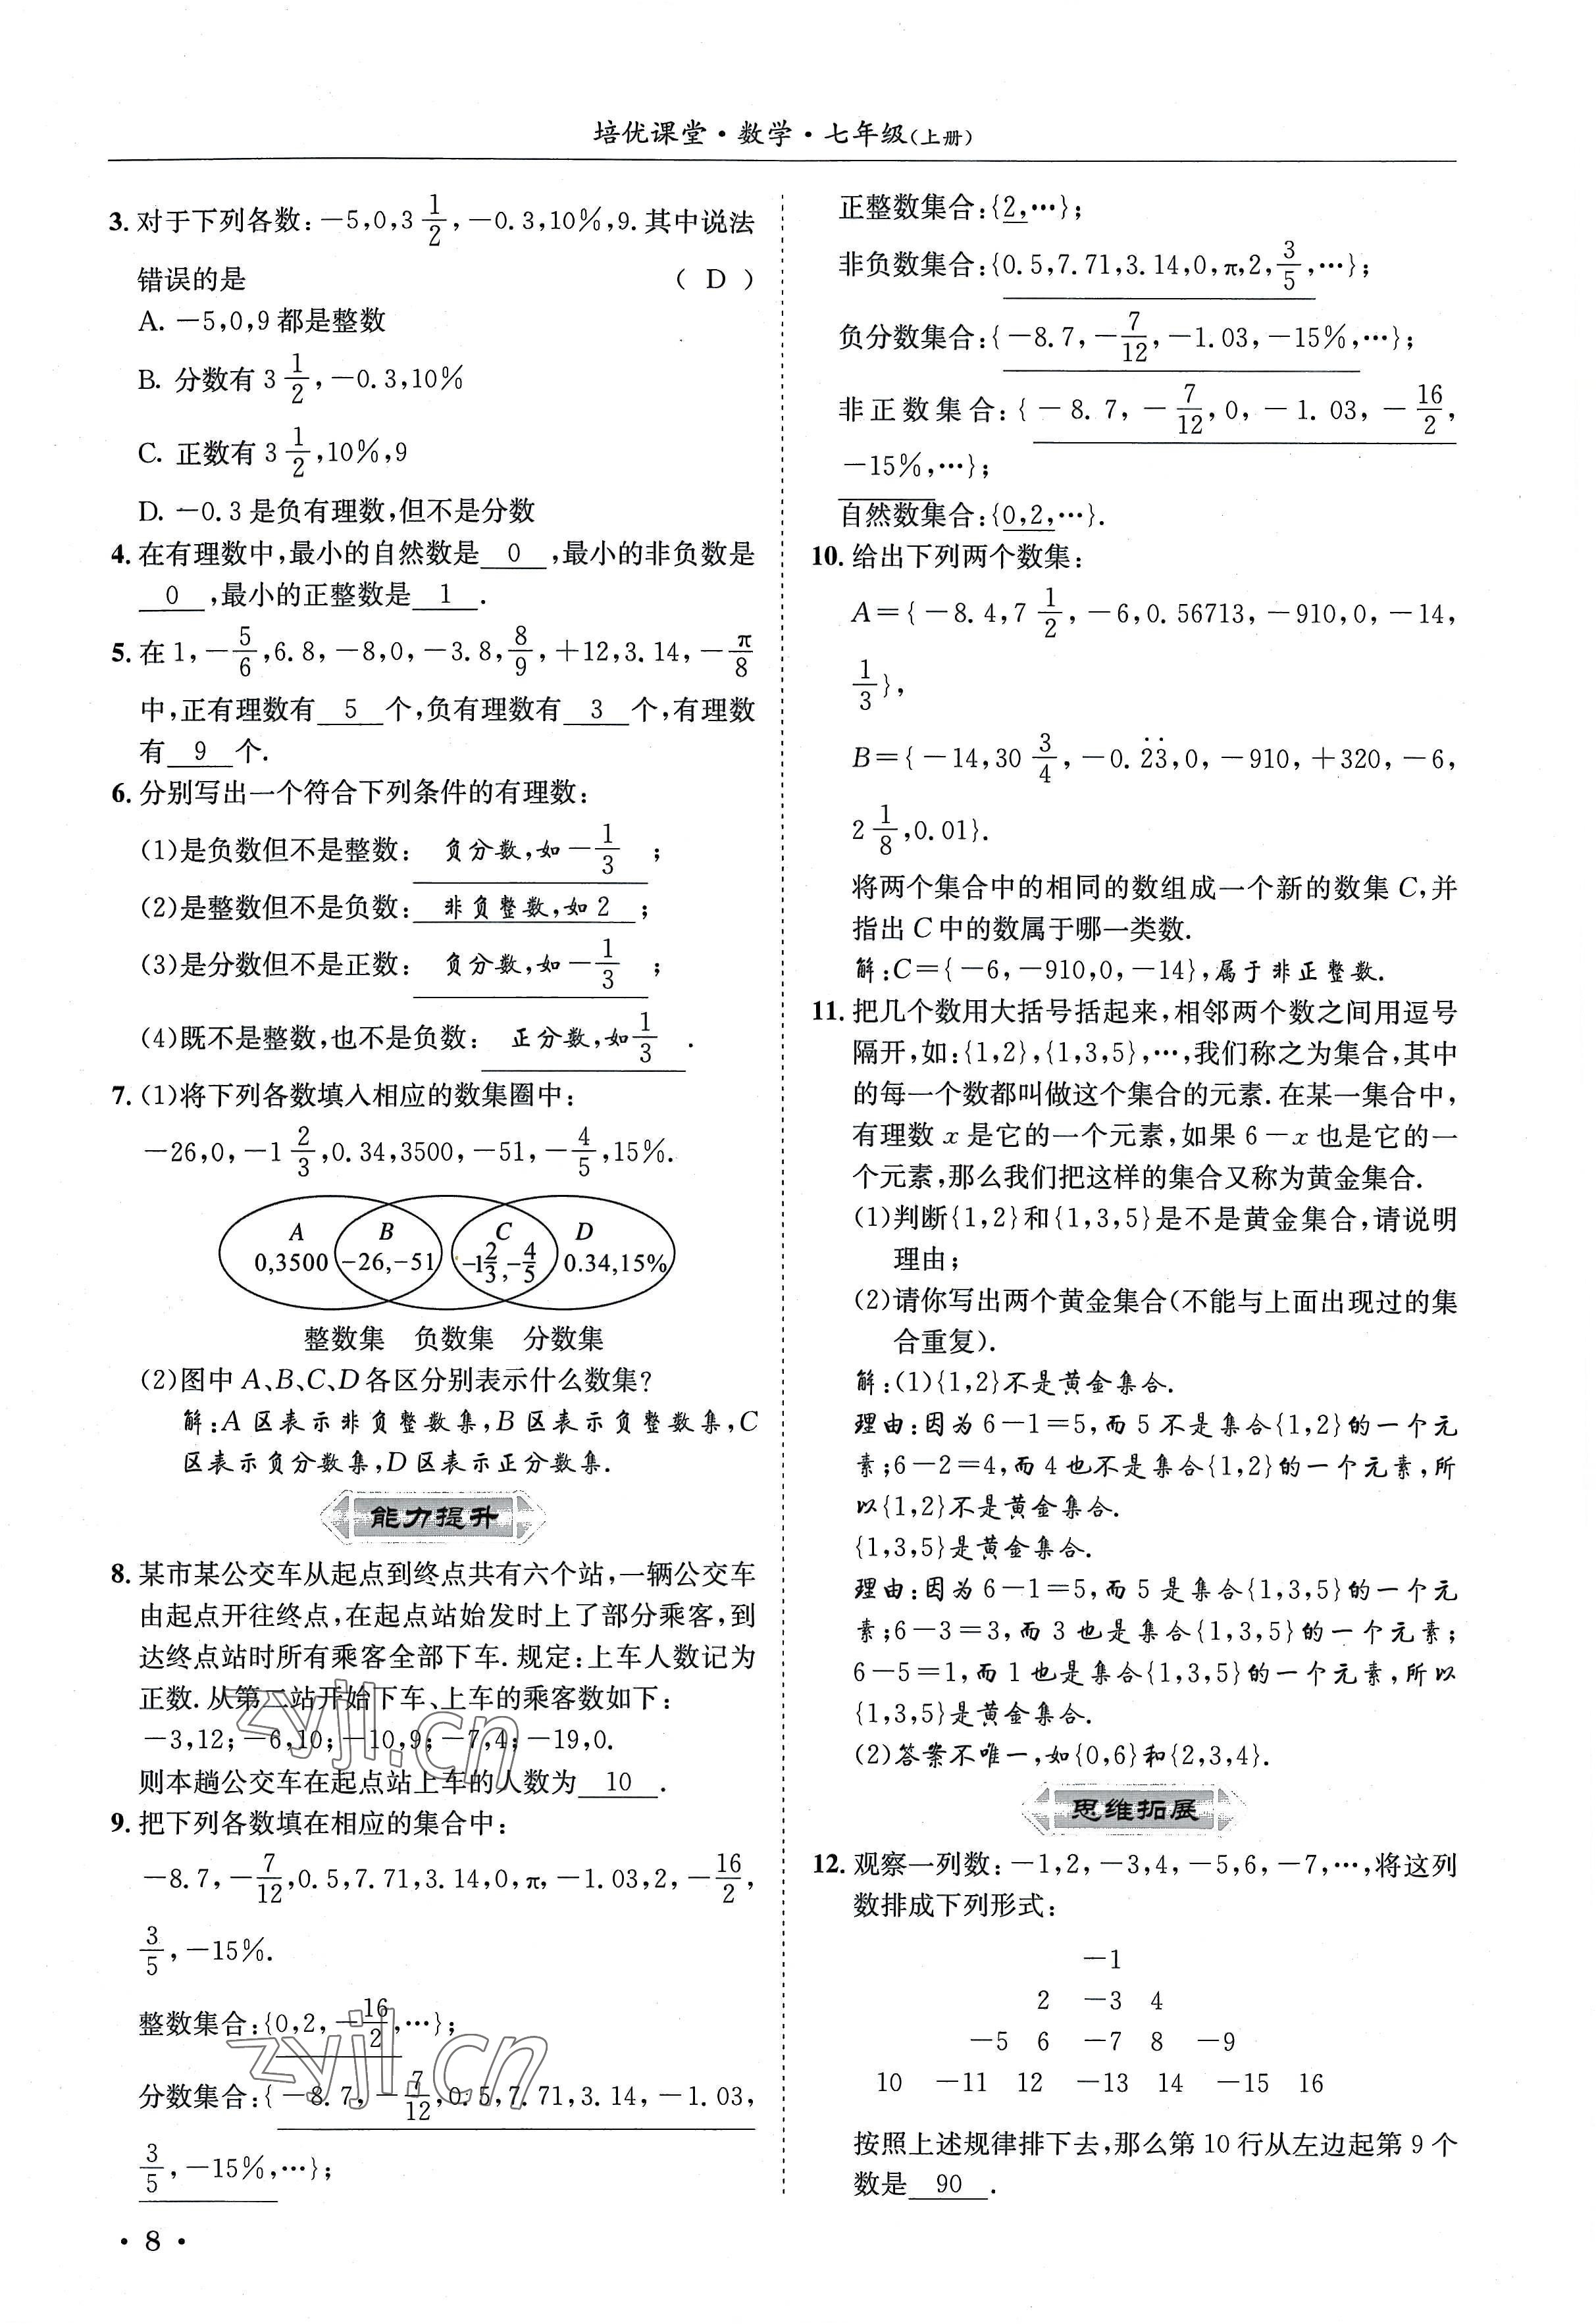 培优课堂·数学·七年级(上册)
3. 对于下列各数:−5,0,3 1/2,−0.3,10%,9.其中说法
错误的是 ( D )
A. −5,0,9都是整数
B. 分数有3 1/2,−0.3,10%
C. 正数有3 1/2,10%,9
D. −0.3是负有理数,但不是分数
4. 在有理数中,最小的自然数是 0 ,最小的非负数是
0 ,最小的正整数是 1 .
5. 在1,−5/6,6.8,−8,0,−3.8,8/9,+12,3.14,−π/8
中,正有理数有 5 个,负有理数有 3 个,有理数
有 9 个.
6. 分别写出一个符合下列条件的有理数:
(1)是负数但不是整数: 负分数,如−1/3 ;
(2)是整数但不是负数: 非负整数,如2 ;
(3)是分数但不是正数: 负分数,如−1/3 ;
(4)既不是整数,也不是负数: 正分数,如1/3 .
7. (1)将下列各数填入相应的数集圈中:
−26,0,−1 2/3,0.34,3500,−51,−4/5,15%.
A B C D
0,3500 −26,−51 −1 2/3,−4/5 0.34,15%
整数集 负数集 分数集
(2)图中A、B、C、D各区分别表示什么数集?
解:A区表示非负整数集,B区表示负整数集,C
区表示负分数集,D区表示正分数集.
能力提升
8. 某市某公交车从起点到终点共有六个站,一辆公交车
由起点开往终点,在起点站始发时上了部分乘客,到
达终点站时所有乘客全部下车.规定:上车人数记为
正数.从第二站开始下车、上车的乘客数如下:
−3,12;−6,10;−10,9;−7,4;−19,0.
则本趟公交车在起点站上车的人数为 10 .
zyjl.cn
9. 把下列各数填在相应的集合中:
−8.7,−7/12,0.5,7.71,3.14,0,π,−1.03,2,−16/2,
3/5,−15%.
整数集合:{0,2,−16/2,…};
分数集合:{−8.7,−7/12,0.5,7.71,3.14,−1.03,
3/5,−15%,…};
zyjl.cn
·8·
正整数集合:{2,…};
非负数集合:{0.5,7.71,3.14,0,π,2,3/5,…};
负分数集合:{−8.7,−7/12,−1.03,−15%,…};
非正数集合:{−8.7,−7/12,0,−1.03,−16/2,
−15%,…};
自然数集合:{0,2,…}.
10. 给出下列两个数集:
A={−8.4,7 1/2,−6,0.56713,−910,0,−14,
1/3},
B={−14,30 3/4,−0.2̇3̇,0,−910,+320,−6,
2 1/8,0.01}.
将两个集合中的相同的数组成一个新的数集C,并
指出C中的数属于哪一类数.
解:C={−6,−910,0,−14},属于非正整数.
11. 把几个数用大括号括起来,相邻两个数之间用逗号
隔开,如:{1,2},{1,3,5},…,我们称之为集合,其中
的每一个数都叫做这个集合的元素.在某一集合中,
有理数x是它的一个元素,如果6−x也是它的一
个元素,那么我们把这样的集合又称为黄金集合.
(1)判断{1,2}和{1,3,5}是不是黄金集合,请说明
理由;
(2)请你写出两个黄金集合(不能与上面出现过的集
合重复).
解:(1){1,2}不是黄金集合.
理由:因为6−1=5,而5不是集合{1,2}的一个元
素;6−2=4,而4也不是集合{1,2}的一个元素,所
以{1,2}不是黄金集合.
{1,3,5}是黄金集合.
理由:因为6−1=5,而5是集合{1,3,5}的一个元
素;6−3=3,而3也是集合{1,3,5}的一个元素;
6−5=1,而1也是集合{1,3,5}的一个元素,所以
{1,3,5}是黄金集合.
(2)答案不唯一,如{0,6}和{2,3,4}.
思维拓展
12. 观察一列数:−1,2,−3,4,−5,6,−7,…,将这列
数排成下列形式:
−1
2 −3 4
−5 6 −7 8 −9
10 −11 12 −13 14 −15 16
按照上述规律排下去,那么第10行从左边起第9个
数是 90 .